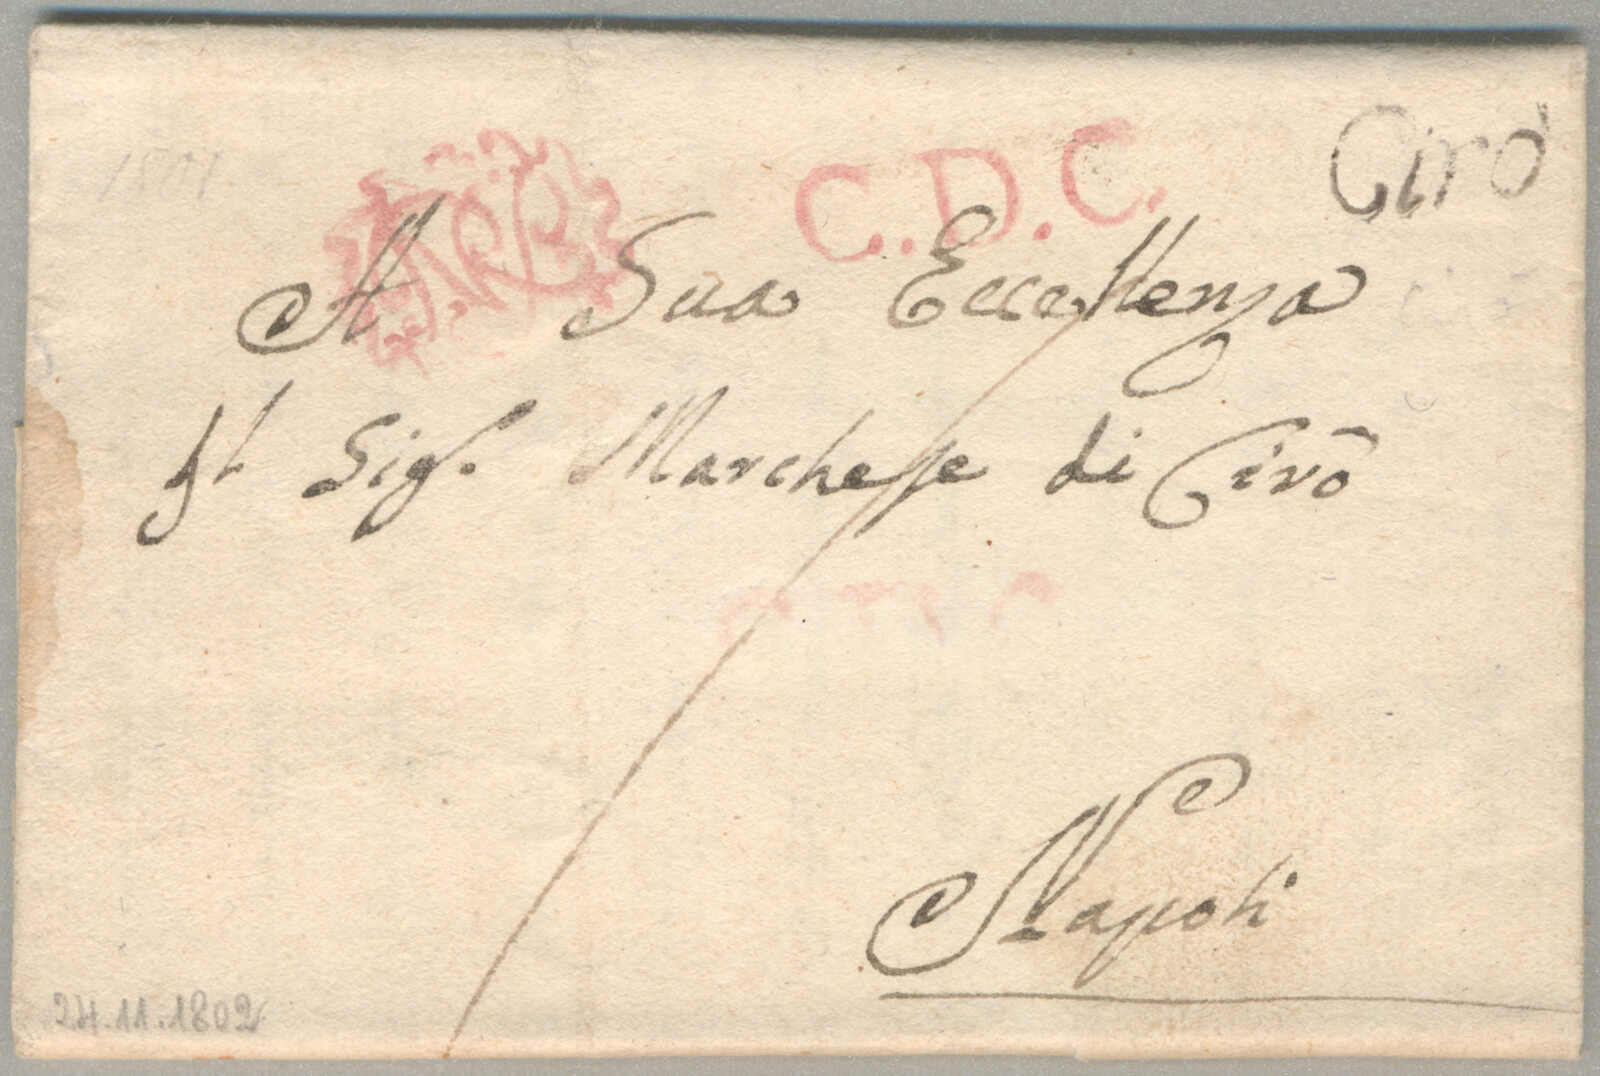 1801
C.D.C.
Cirò
A Sua Eccellenza
Il Sig.r Marchese di Cirò
Napoli
24.11.1802